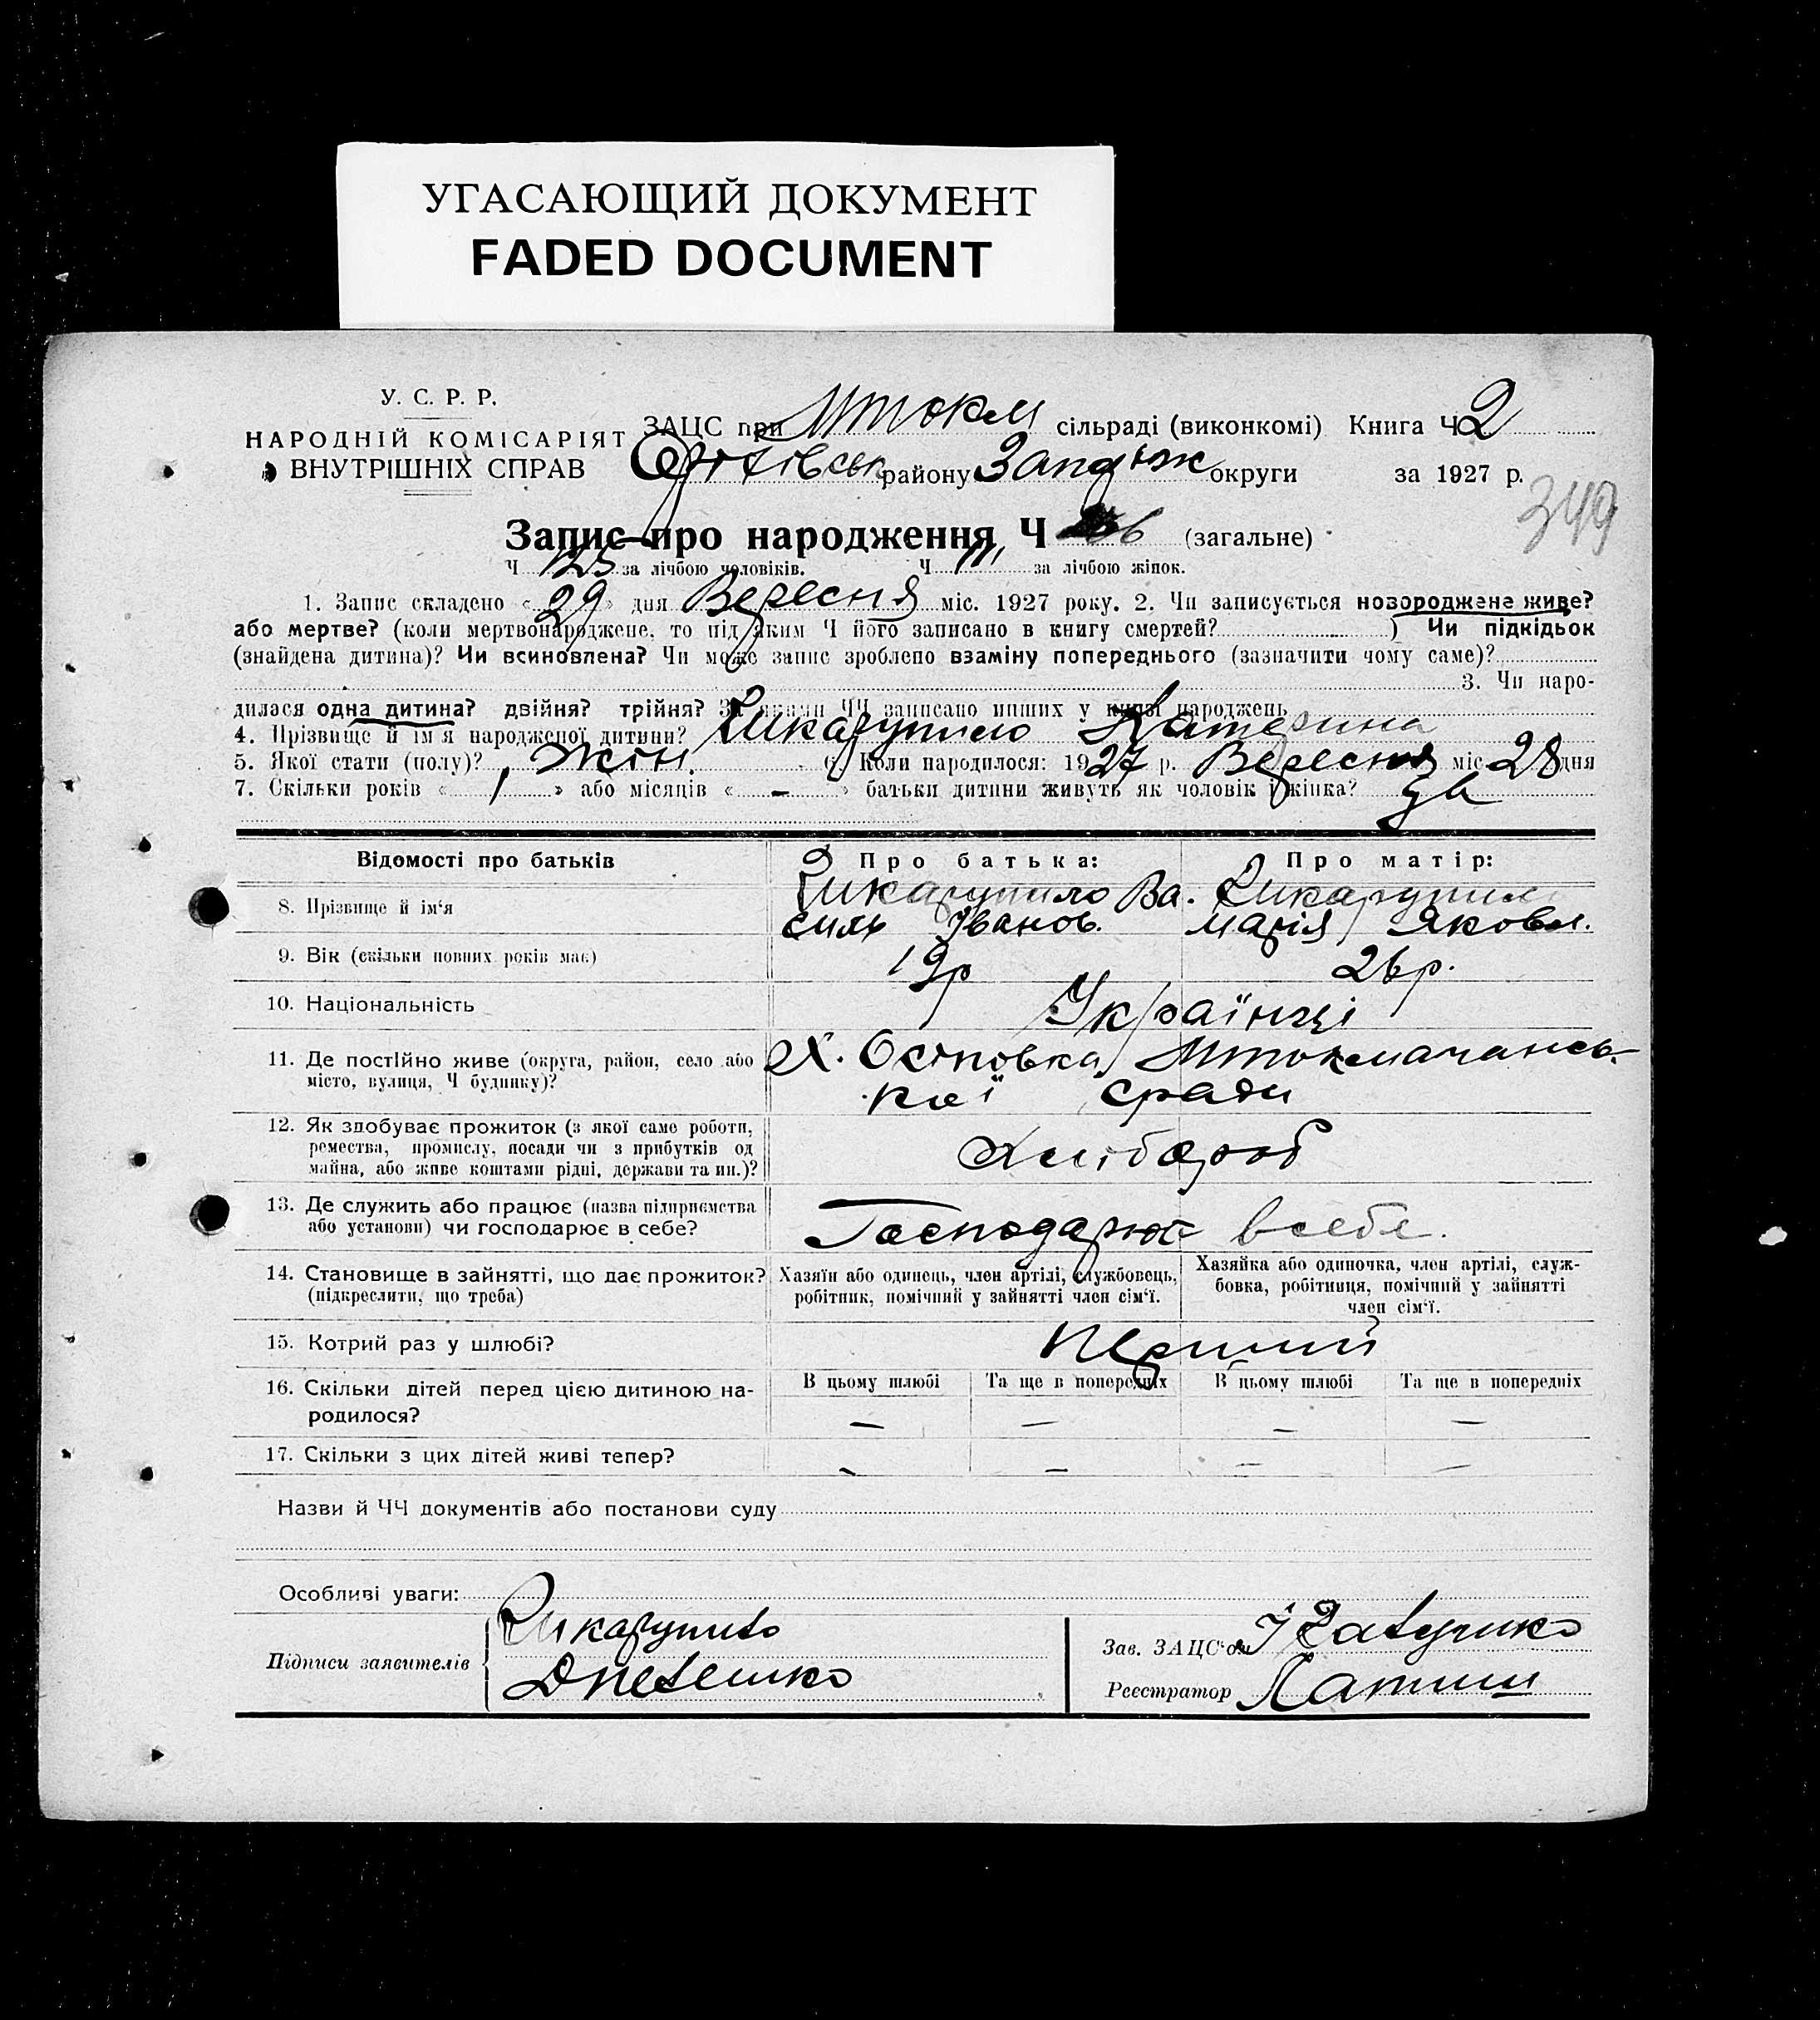 УГАСАЮЩИЙ ДОКУМЕНТ
FADED DOCUMENT
У. С. Р. Р.
НАРОДНІЙ КОМІСАРІЯТ
ВНУТРІШНІХ СПРАВ
ЗАЦС при Мтокм сільраді (виконкомі) Книга Ч 2
Оріхівськ району Запоріж округи за 1927 р.
349
Запис про народження Ч (загальне)
Ч 125 за лічбою чоловіків. Ч 111 за лічбою жінок.
1. Запис складено « 29 » дня Вересня міс. 1927 року. 2. Чи записується новороджене живе?
або мертве? (коли мертвонароджене, то під яким Ч його записано в книгу смертей? ) Чи підкідьок
(знайдена дитина)? Чи всиновлена? Чи може запис зроблено взаміну попереднього (зазначити чому саме)?
3. Чи наро-
дилася одна дитина? двійня? трійня? За якими ЧЧ записано инших у книзі народжень
4. Прізвище й ім'я народженої дитини? Чикарупило Катерина
5. Якої стати (полу)? жін. 6. Коли народилося: 1927 р. Вересня міс. 28 дня
7. Скільки років « 1 » або місяців « - » батьки дитини живуть як чоловік і жінка? да
Відомості про батьків Про батька: Про матір:
8. Прізвище й ім'я Чикарупило Ва- Чикарупил
силь Іванов. Марія Яковл.
9. Вік (скільки повних років має) 19р 26р.
10. Національність Українці
11. Де постійно живе (округа, район, село або Х. Осіповка Мтокмачансь-
місто, вулиця, Ч будинку)? кої сради
12. Як здобуває прожиток (з якої саме роботи, Хлібороб
ремества, промислу, посади чи з прибутків од
майна, або живе коштами рідні, держави та ин.)?
13. Де служить або працює (назва підприємства Господарює в себе.
або установи) чи господарює в себе?
14. Становище в зайнятті, що дає прожиток? Хазяїн або одинець, член артілі, службовець, Хазяйка або одиночка, член артілі, служ-
(підкреслити, що треба) робітник, помічний у зайнятті член сім'ї. бовка, робітниця, помічний у зайнятті
член сім'ї.
15. Котрий раз у шлюбі? Перший
16. Скільки дітей перед цією дитиною на- В цьому шлюбі Та ще в попередніх В цьому шлюбі Та ще в попередніх
родилося? — — — —
17. Скільки з цих дітей живі тепер? — — — —
Назви й ЧЧ документів або постанови суду
Особливі уваги:
Підписи заявителів Чикарупило
Зав. ЗАЦС'ом
Реєстратор Латиш